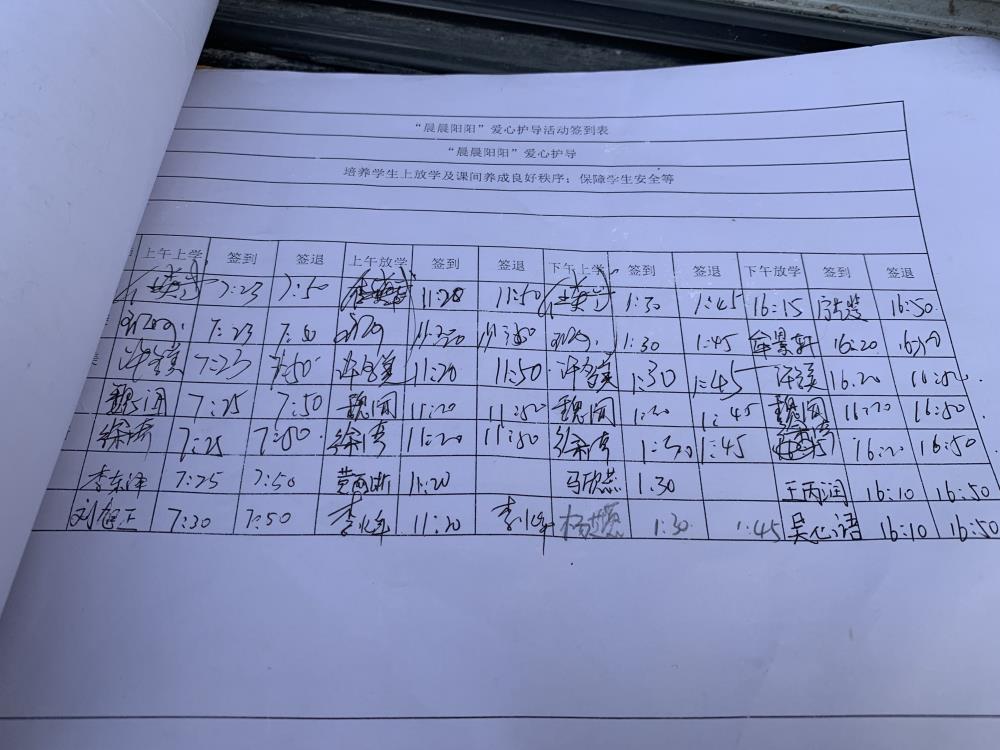 “晨晨阳阳”爱心护导活动签到表
“晨晨阳阳”爱心护导
培养学生上放学及课间养成良好秩序；保障学生安全等
上午上学 签到 签退 上午放学 签到 签退 下午上学 签到 签退 下午放学 签到 签退
7:23 7:50 11:20 11:50 1:30 1:45 16:15 16:50
7:23 1:30 1:45 16:20
7:23 7:50 11:20 11:50 1:30 1:45 16:20 16:50
魏闻 7:25 7:50 魏闻 11:20 11:50 魏闻 1:30 1:45 魏闻 16:20 16:50
徐倩 7:25 7:50 徐倩 11:20 11:50 徐倩 1:30 1:45 16:20 16:50
李东泽 7:25 7:50 11:20 马欣燕 1:30 王丙润 16:10 16:50
刘旭正 7:30 7:50 11:20 1:30 1:45 吴心语 16:10 16:50